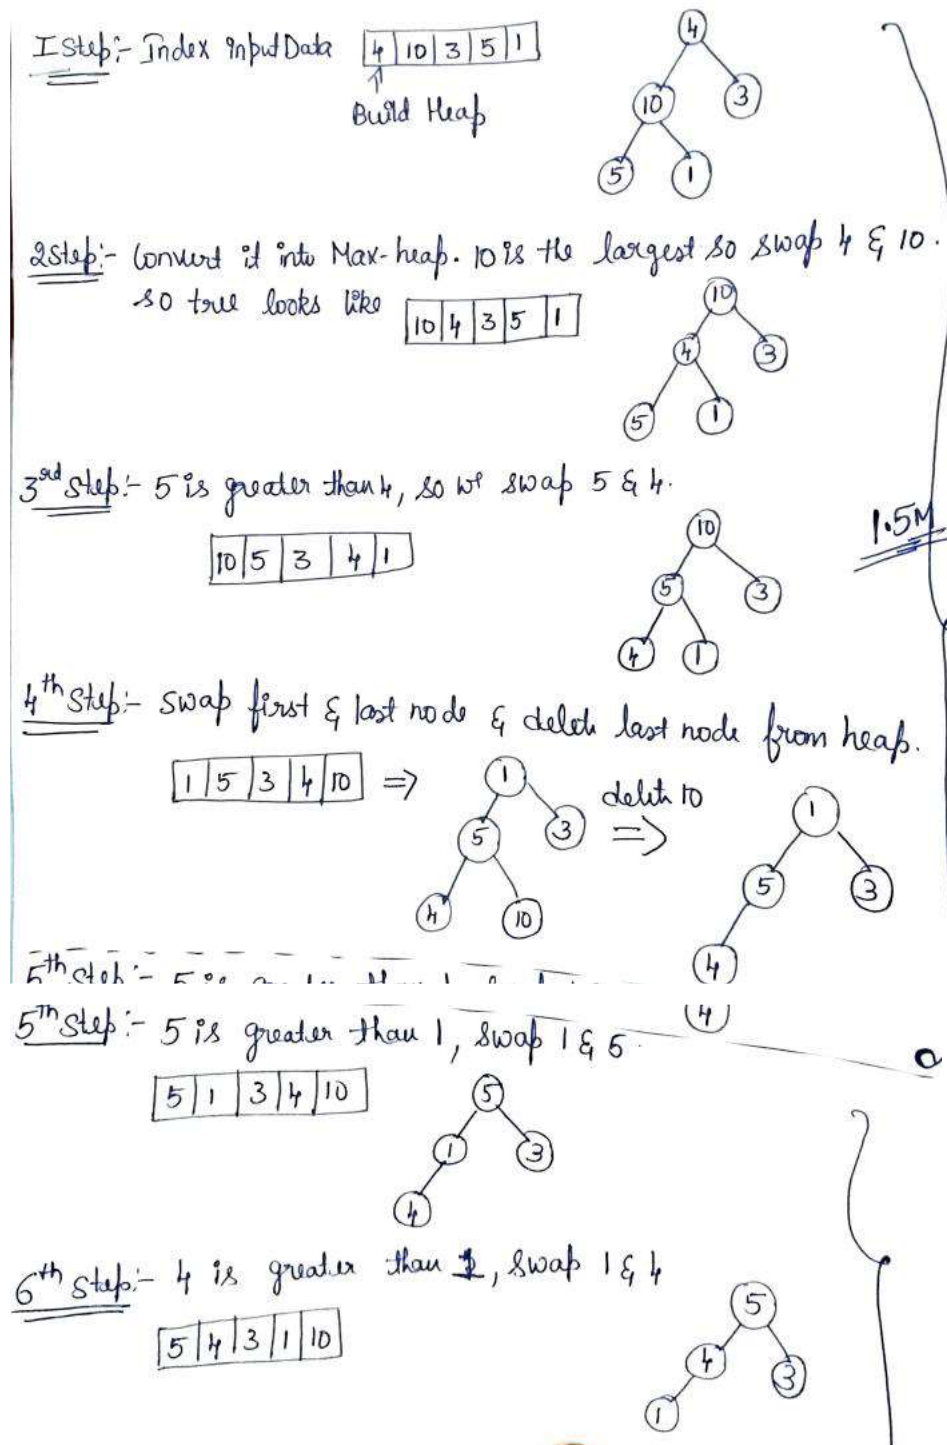 I Step:- Index input Data 4 10 3 5 1
↑
Build Heap
4
10 3
5 1
2 Step:- Convert it into Max-heap. 10 is the largest so swap 4 & 10.
so tree looks like 10 4 3 5 1
10
4 3
5 1
3rd Step:- 5 is greater than 4, so we swap 5 & 4.
10 5 3 4 1
10
5 3
4 1
1.5M
4th Step:- Swap first & last node & delete last node from heap.
1 5 3 4 10 ⇒
1
5 3
4 10
delete 10
⇒
1
5 3
4
5th Step:- 5 is greater than 1, swap 1 & 5.
4
5 1 3 4 10
5
1 3
4
6th Step:- 4 is greater than 1, swap 1 & 4
5 4 3 1 10
5
4 3
1